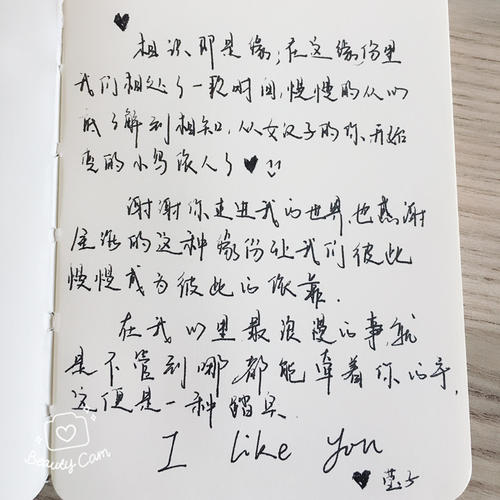 相识即是缘;在这缘份里
我们相处了一段时间,慢慢的从心
底了解到相知,从女汉子的你开始
变的小鸟依人了
谢谢你走进我的世界,也感谢
这种缘份让我们彼此
慢慢成为彼此的依靠.
在我心里最浪漫的事,就
是不管到哪,都能牵着你的手,
这便是一种踏实.
I like you
Beauty Cam